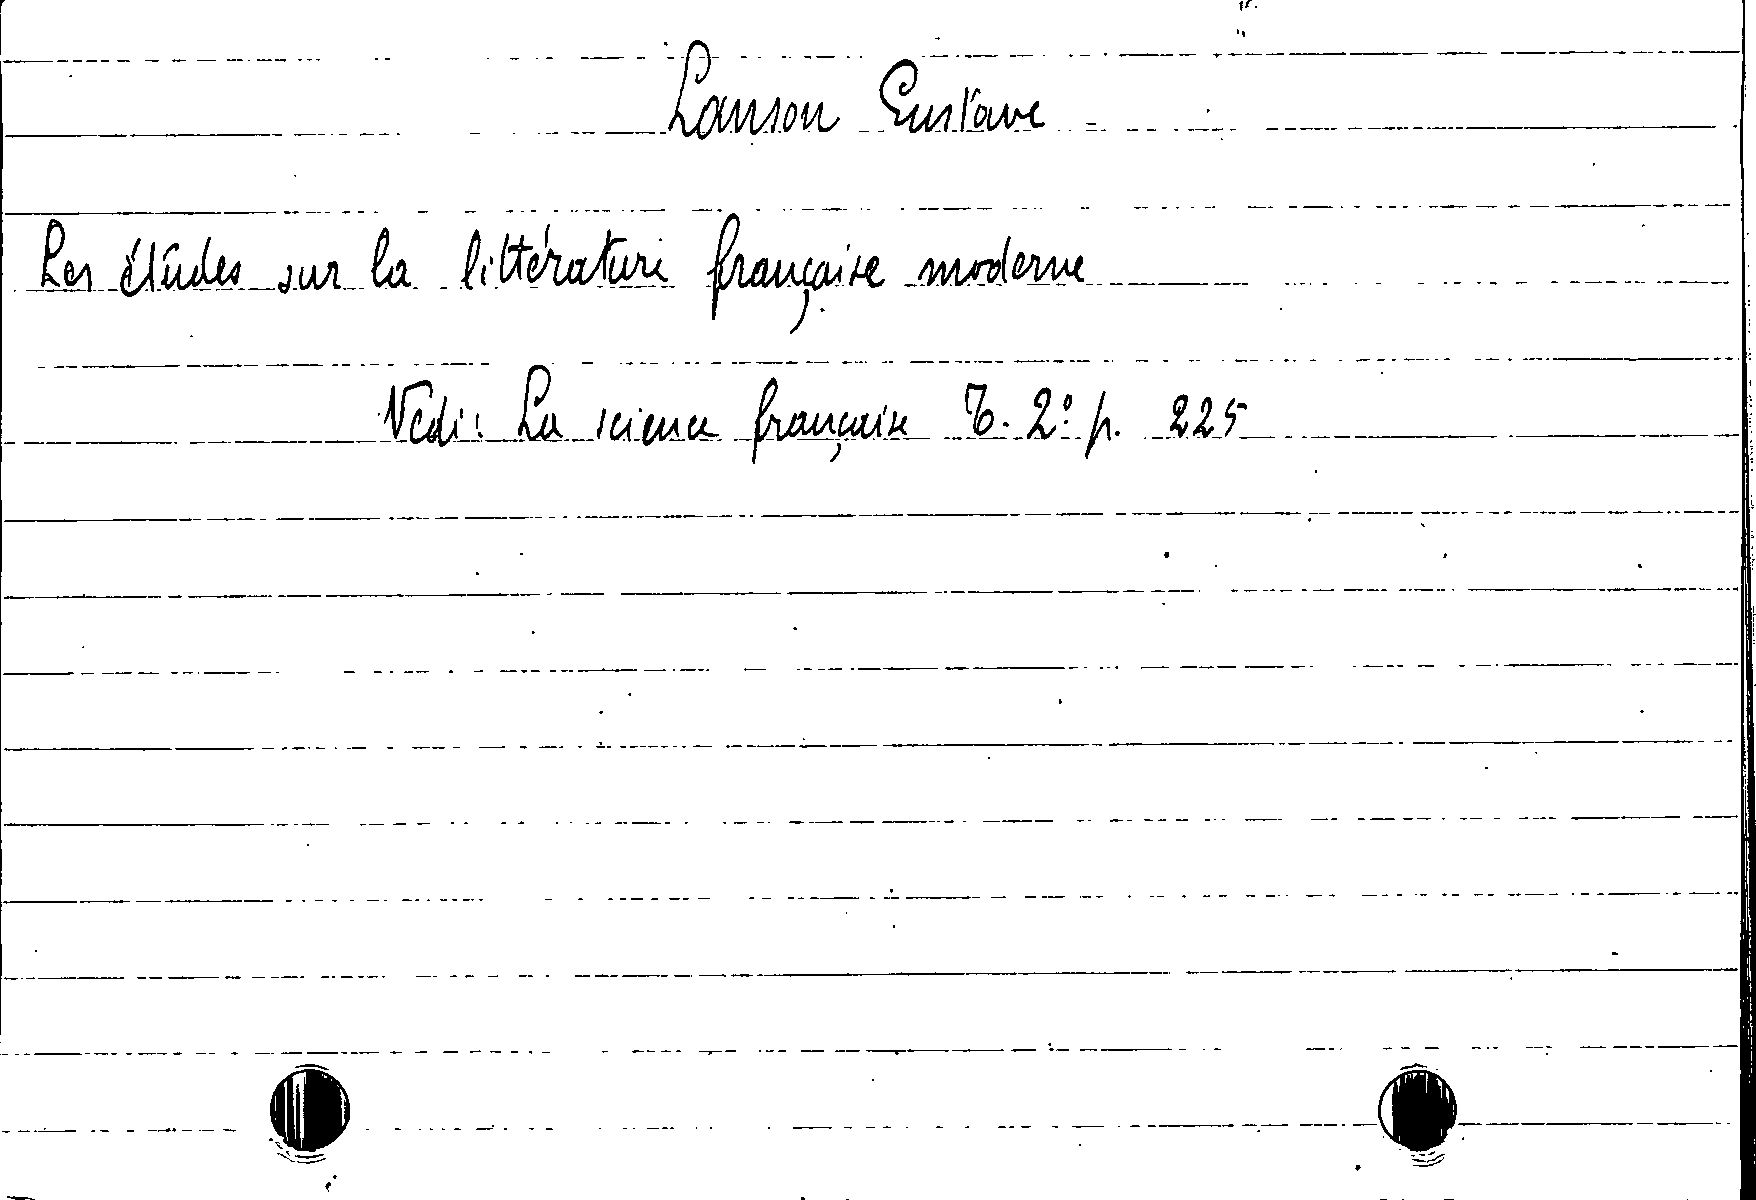 Lanson Gustave
Les études sur la littérature française moderne
Vedi: La science française T. 2º p. 225